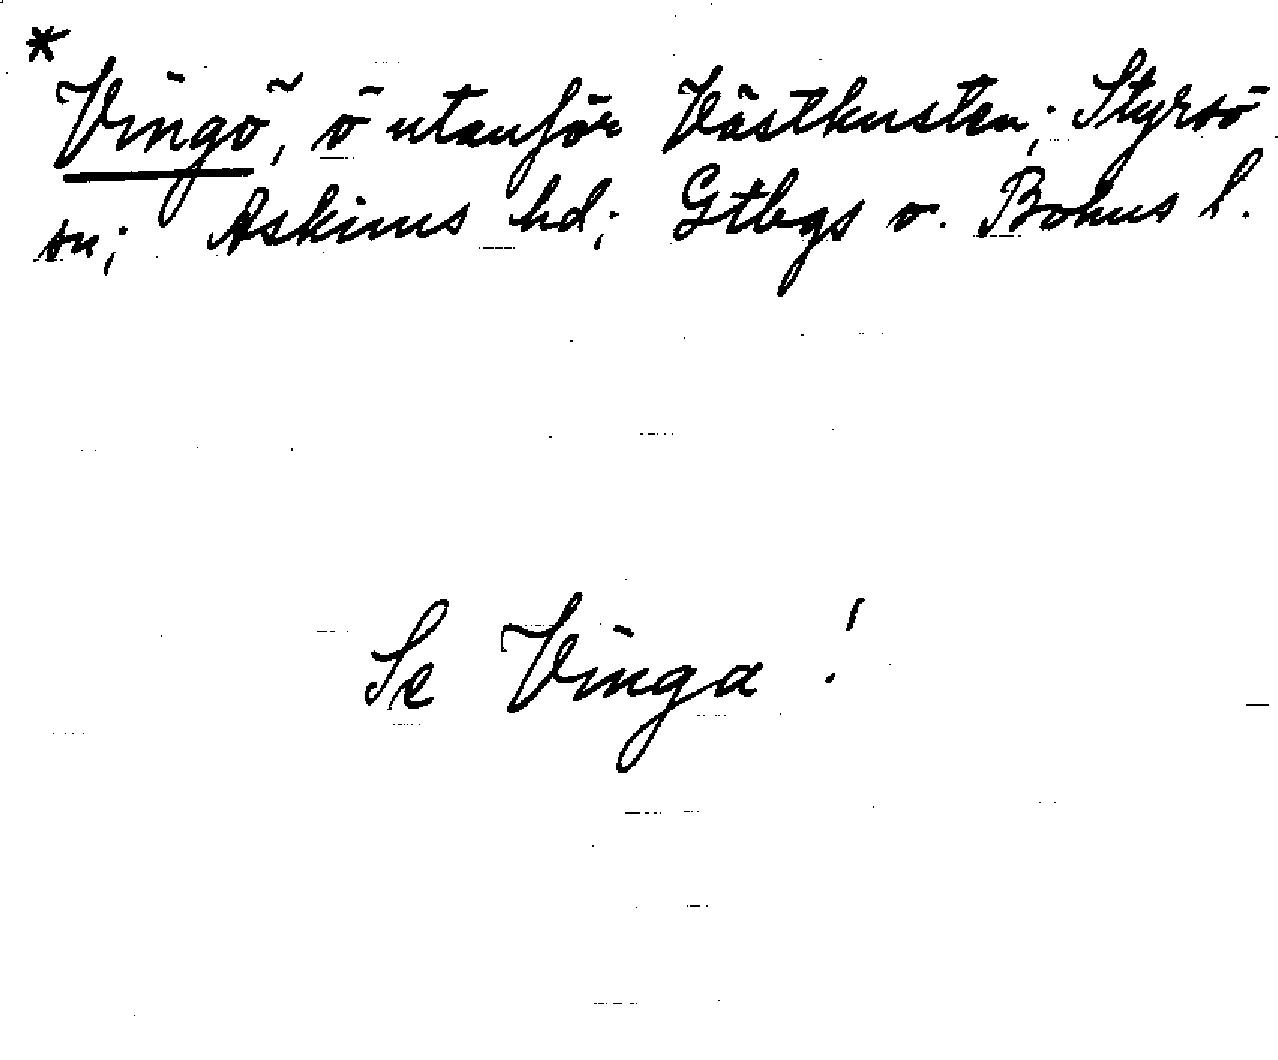 * Vingö, ö utanför Västkusten; Styrsö
sn; Askims hd; Gtbgs o. Bohus l.
Se Vinga!